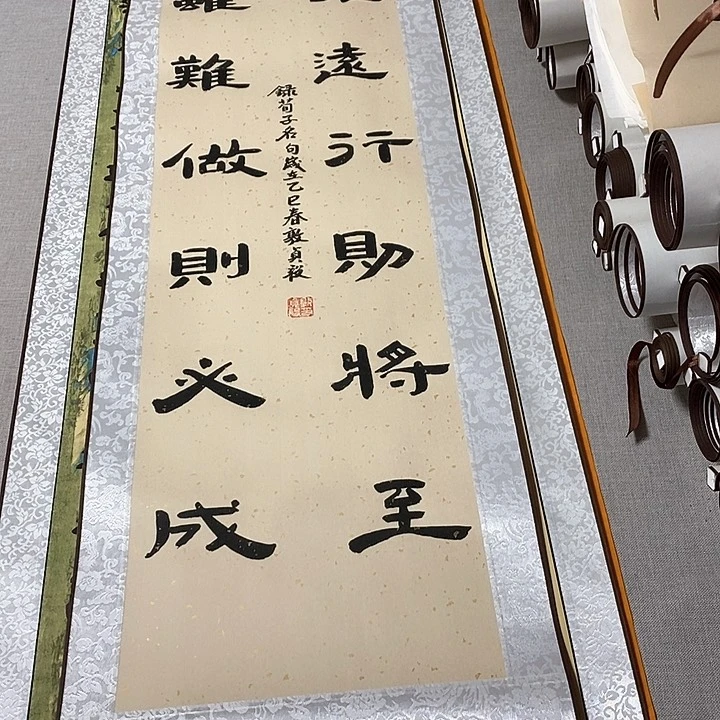 遠行則將至
錄荀子名句歲在乙巳春敦貞毅
雖難做則必成